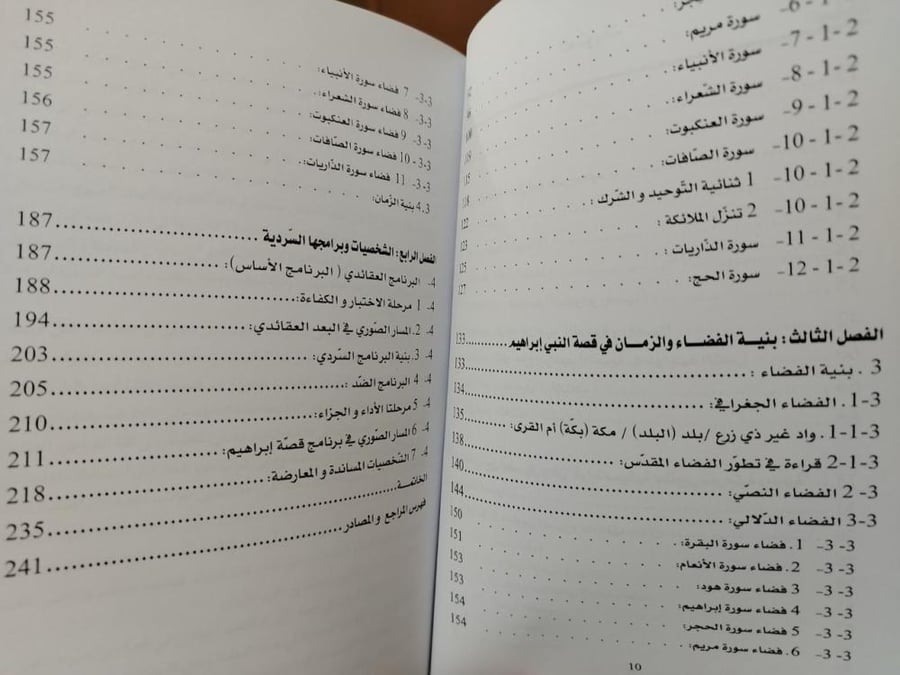 سورة مريم: -6-1
2-1-7- سورة الأنبياء:
2-1-8- سورة الشّعراء:
2-1-9- سورة العنكبوت: 115
2-1-10- سورة الصّافات: 118
2-1-10- 1 ثنائية التّوحيد و الشّرك : 122
2-1-10- 2 تنزّل الملائكة : 123
2-1-11- سورة الذّاريات: 125
2-1-12- سورة الحج: 127
الفصل الثالث: بنيـة الفضـاء والزمـان في قصة النبي إبراهيم..........133
3 . بنية الفضاء : ..........133
3-1. الفضاء الجغرافي: ..........134
3-1-1. واد غير ذي زرع /بلد (البلد) / مكة (بكّة) أم القرى: 135
3-1-2 قراءة في تطوّر الفضاء المقدّس: ..........138
3-2 الفضاء النصّي: ..........140
3-3 الفضاء الدّلالي: ..........144
3-3- 1. فضاء سورة البقرة: 150
3-3- 2. فضاء سورة الأنعام: 151
3-3- 3 فضاء سورة هود: 153
3-3- 4 فضاء سورة إبراهيم: 153
3-3- 5 فضاء سورة الحجر: 154
3-3- 6. فضاء سورة مريم: 154
10
3-3- 7 فضاء سورة الأنبياء: 155
3-3- 8 فضاء سورة الشعراء: 155
3-3- 9 فضاء سورة العنكبوت: 155
3-3- 10 فضاء سورة الصّافات: 156
3-3- 11 فضاء سورة الذّاريات: 157
3. 4 بنية الزّمان: 157
الفصل الرابع: الشخصيات وبرامجها السّردية ..........187
4- البرنامج العقائدي ( البرنامج الأساس): ..........187
4- 1 مرحلة الاختبار و الكفاءة: ..........188
4- 2. المسار الصّوري في البعد العقائدي: ..........194
4- 3. بنية البرنامج السّردي: ..........203
4- 4 البرنامج الضّد : ..........205
4- 5 مرحلتا الأداء و الجزاء: ..........210
4- 6 المسار الصّوري في برنامج قصّة إبراهيم: ..........211
4- 7 الشّخصيات المساندة و المعارضة: ..........218
الخاتمـــة ..........235
فهرس المراجع و المصادر ..........241